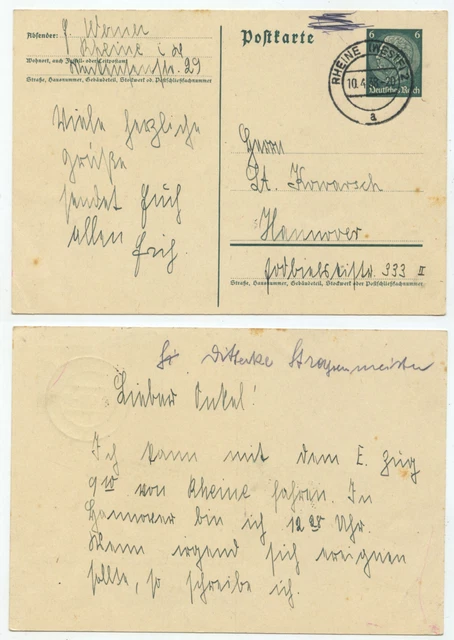 Absender: F. Werner
Rheine i. W.
Wohnort, auch Zustell- oder Leitpostamt
29
Straße, Hausnummer, Gebäudeteil, Stockwerk od. Postschließfachnummer
Viele herzliche
Grüße
sendet Euch
allen
Frih.
Postkarte
6 6
Deutsches Reich
RHEINE (WESTF) 2
10.4.
a
Herrn
St. Kowarsch
Hannover
Podbielskistr. 333 II
Straße, Hausnummer, Gebäudeteil, Stockwerk oder Postschließfachnummer
Straßenmeister
Lieber Onkel!
Ich kann mit dem E. Zug
9 10 von Rheine fahren. In
Hannover bin ich 12 Uhr.
Wenn irgend sich ereignen
sollte, so schreibe ich.